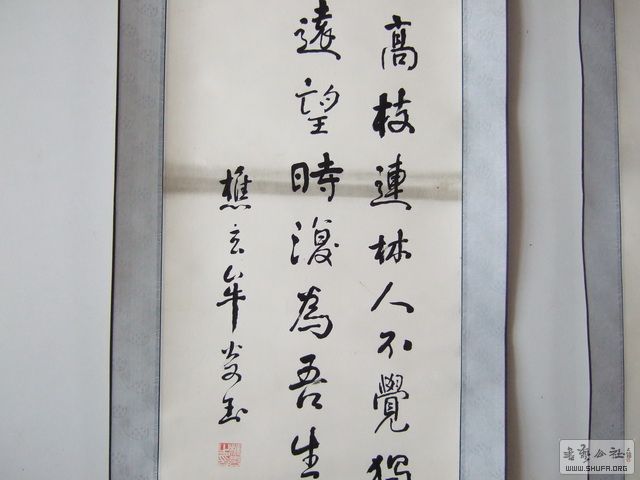 高枝連林人不覺獨
遠望時復為吾生
樵玄牟
書藝公社
WWW.SHUFA.ORG